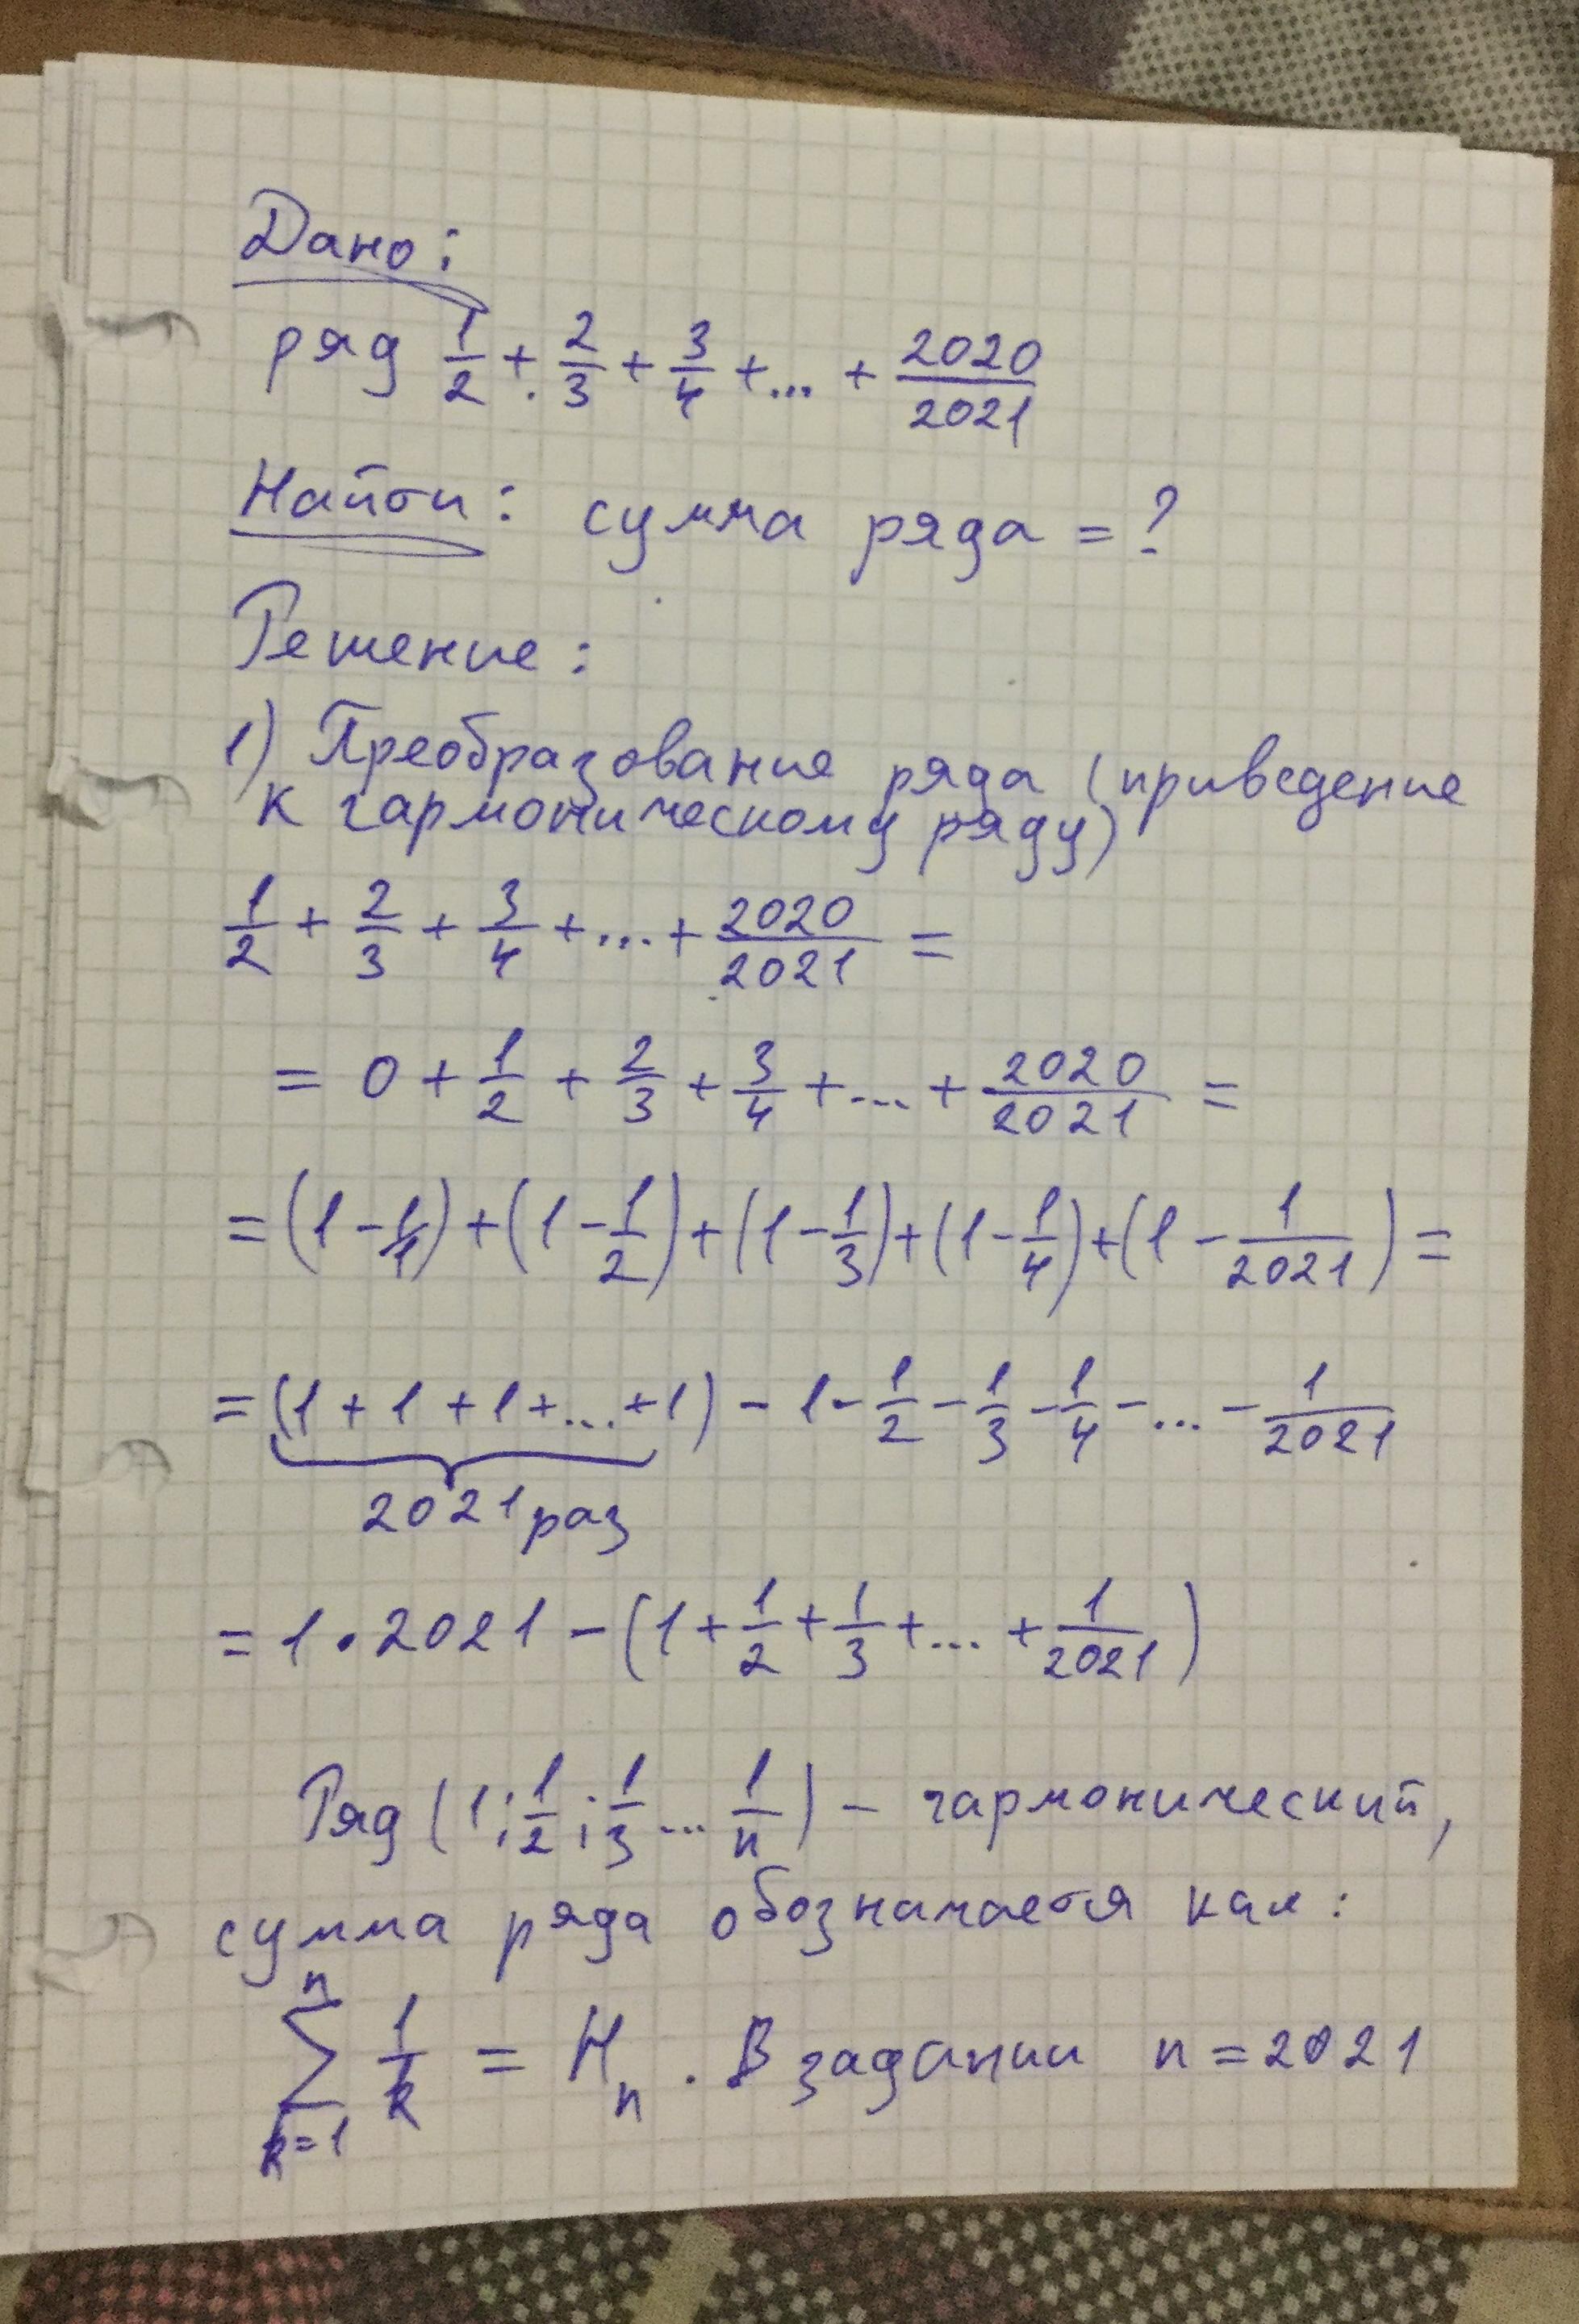 Дано:
ряд 1/2 + 2/3 + 3/4 + ... + 2020/2021
Найти: сумма ряда = ?
Решение:
1) Преобразование ряда (приведение
к гармоническому ряду)
1/2 + 2/3 + 3/4 + ... + 2020/2021 =
= 0 + 1/2 + 2/3 + 3/4 + ... + 2020/2021 =
= (1 - 1/1) + (1 - 1/2) + (1 - 1/3) + (1 - 1/4) + (1 - 1/2021) =
= (1 + 1 + 1 + ... + 1) - 1 - 1/2 - 1/3 - 1/4 - ... - 1/2021
2021 раз
= 1 · 2021 - (1 + 1/2 + 1/3 + ... + 1/2021)
Ряд (1; 1/2; 1/3 ... 1/n) - гармонический,
сумма ряда обозначается как:
n
∑ 1/k = Hn. В задании n = 2021
k=1